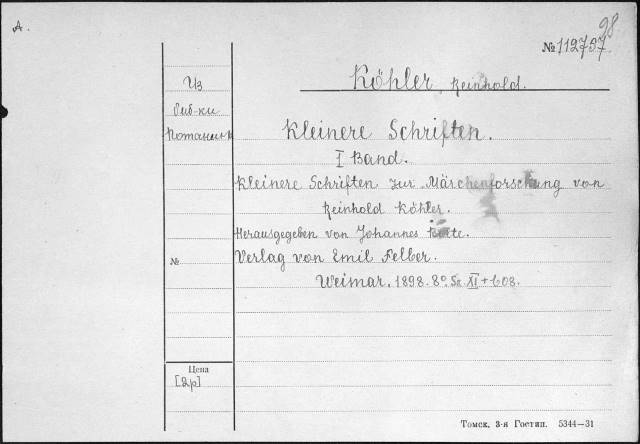 А.
98
№ 112757.
Köhler, Reinhold.
Из
биб-ки
Потанина
Kleinere Schriften.
I Band.
Kleinere Schriften zur Märchenforschung von
Reinhold Köhler.
Herausgegeben von Johannes Bolte.
№
Verlag von Emil Felber.
Weimar. 1898. 8º. XI + 608.
Цена
[2р]
Томск, 3-я Гостип. 5344—31